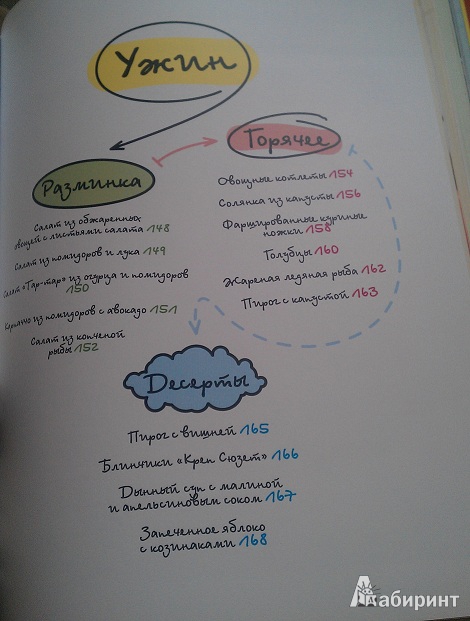 Ужин
Разминка
Салат из обжаренных
овощей с листьями салата 148
Салат из помидоров и лука 149
Салат «Тар-тар» из огурца и помидоров
150
Карпаччо из помидоров с авокадо 151
Салат из копченой
рыбы 152
Горячее
Овощные котлеты 154
Солянка из капусты 156
Фаршированные куриные
ножки 158
Голубцы 160
Жареная ледяная рыба 162
Пирог с капустой 163
Десерты
Пирог с вишней 165
Блинчики «Креп Сюзет» 166
Дынный суп с малиной
и апельсиновым соком 167
Запеченное яблоко
с козинаками 168
Лабиринт